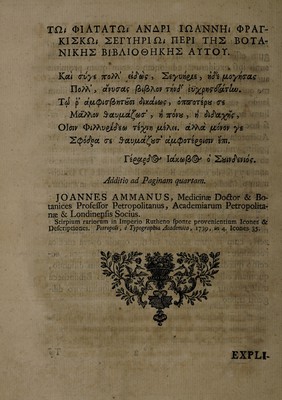 ΤΩι ΦΙΛΤΑΤΩι ΑΝΔΡΙ ΙΩΑΝΝΗι ΦΡΑΓ-
ΚΙΣΚΩι ΣΕΓΥΗΡΙΩι ΠΕΡΙ ΤΗΣ ΒΟΤΑ-
ΝΙΚΗΣ ΒΙΒΛΙΟΘΗΚΗΣ ΑΥΤΟΥ.
Καὶ σύγε πολλ' εἰδὼς, Σεγυήριε, ἠδὲ μογήσας
Πολλ', ἀνυσας βίβλον τήνδ' εὐχρηστοτάτην.
Τῷ ῥ' ἀμφισβητῶσι δικαίως, ὁπποτέρω σε
Μᾶλλον θαυμάζωσ', ἢ πόνῳ, ἢ διδαχῆς,
Οἷσιν Φιλλυρίδεω τέχνη μέλει. ἀλλὰ μόνον γε
Σφόδρα σε θαυμάζωσ' ἀμφοτέροισιν ἔπι.
Γέραρδος Ἰακωβος ὁ Σουηδενιός.
Additio ad Paginam quartam.
JOANNES AMMANUS, Medicinæ Doctor & Bo-
tanices Professor Petropolitanus, Academiarum Petropolita-
næ & Londinensis Socius.
Stirpium rariorum in Imperio Rutheno sponte provenientium Icones &
Descriptiones. Petropoli, è Typographia Academica, 1739. in 4. Icones 35.
EXPLI-